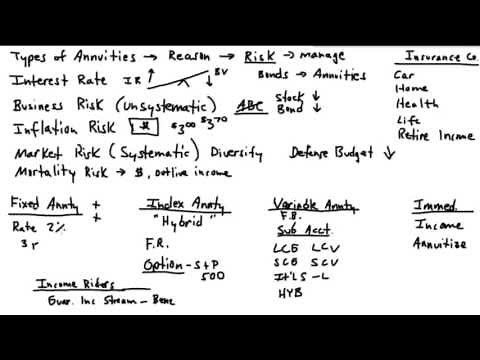 Types of Annuities → Reason → Risk → Manage
Insurance Co.
Interest Rate IR ↑ BV ↓
Bonds → Annuities
Car
Home
Business Risk (Unsystematic) ABC Stock ↓
Bond ↓
Health
Inflation Risk $3.00 $3.70
Life
Retire Income
Market Risk (Systematic) Diversify Defense Budget ↓
Mortality Risk → $, outlive income
Fixed Annty + Index Annty Variable Annty Immed.
Rate 2% + "Hybrid" F.B. Income
Sub Acct.
3 F.R. LCG LCV Annuitize
Option - S+P
500
SCG SCV
INT'L S - L
HYB
Income Riders
Guar. Inc Stream -